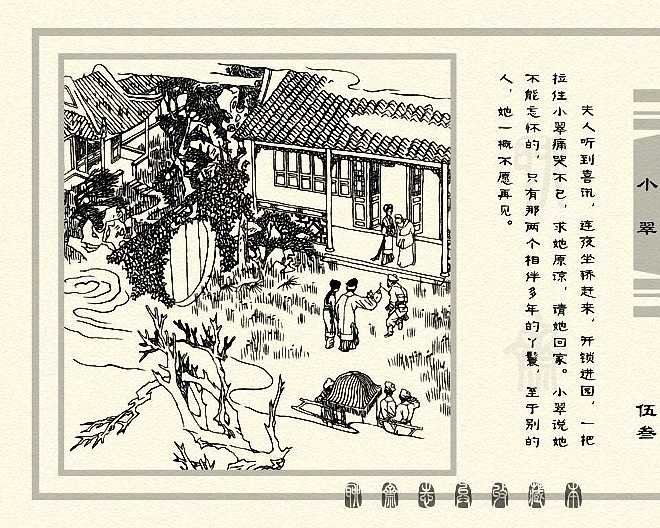 夫人听到喜讯，连夜坐轿赶来，开锁进园，一把
拉住小翠痛哭不已，求她原凉，请她回家。小翠说她
不能忘怀的，只有那两个相伴多年的丫鬟，至于别的
人，她一概不愿再见。
小翠
伍叁